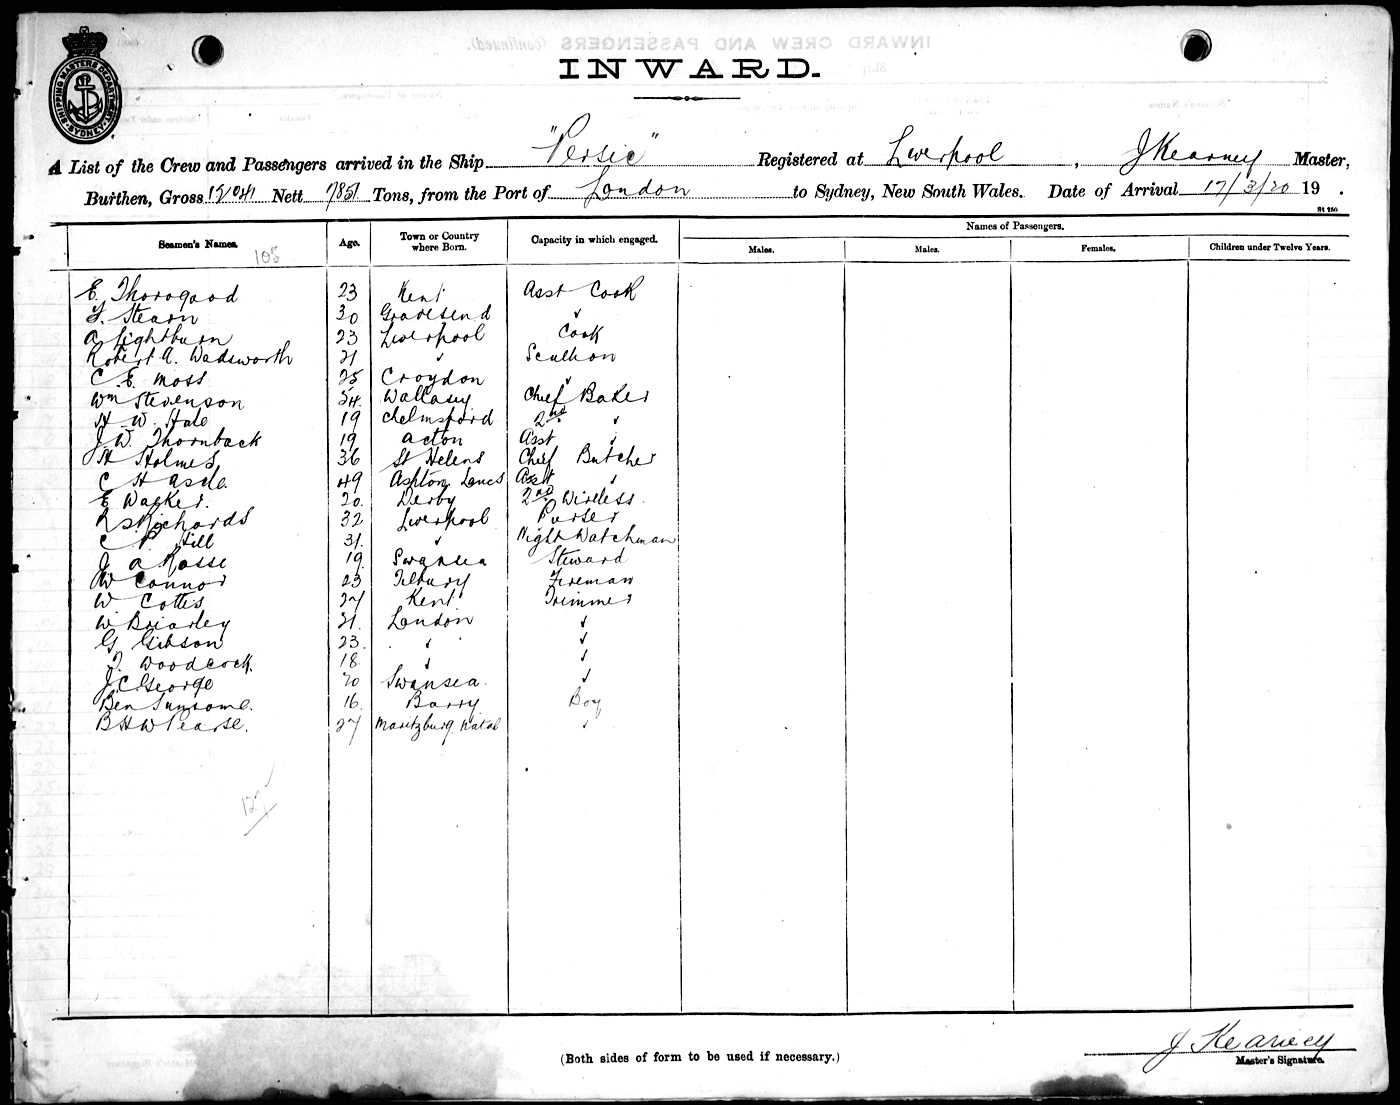 INWARD.
SHIPPING MASTERS DEPARTMENT SYDNEY
A List of the Crew and Passengers arrived in the Ship "Persic" Registered at Liverpool, J Kearney Master,
Burthen, Gross 12041 Nett 7851 Tons, from the Port of London to Sydney, New South Wales. Date of Arrival 17/3/20 19 .
St 250
Seamen's Names. Age. Town or Country where Born. Capacity in which engaged. Names of Passengers.
Males. Males. Females. Children under Twelve Years.
108
E. Thorogood 23 Kent Asst Cook
F. Stearn 30 Gravesend "
A Lightburn 23 Liverpool Cook
Robert A. Wadsworth 21 " Scullion
C. E. Moss 25 Croydon "
Wm Stevenson 54 Wallasey Chief Baker
H. W. Hale 19 Chelmsford 2nd "
J. W. Thornback 19 Acton Asst "
H Holmes 36 St Helens Chief Butcher
C H 49 Ashton Lancs Asst "
E Walker. 20. Derby 2nd Wireless
Richards 32 Liverpool Purser
C P. Hill 31. " Night Watchman
J A Rosse 19 Swansea Steward
W Connor 23 Tilbury Fireman
W Cottis 27 Kent Trimmer
W Briarley 21. London "
G Gibson 23. " "
T. Woodcock. 18 " "
J. C. George 20 Swansea. "
Ben Sunsome. 16. Barry Boy
B H W Pearse. 27 Maritzburg Natal "
127
(Both sides of form to be used if necessary.)
J Kearney
Master's Signature.